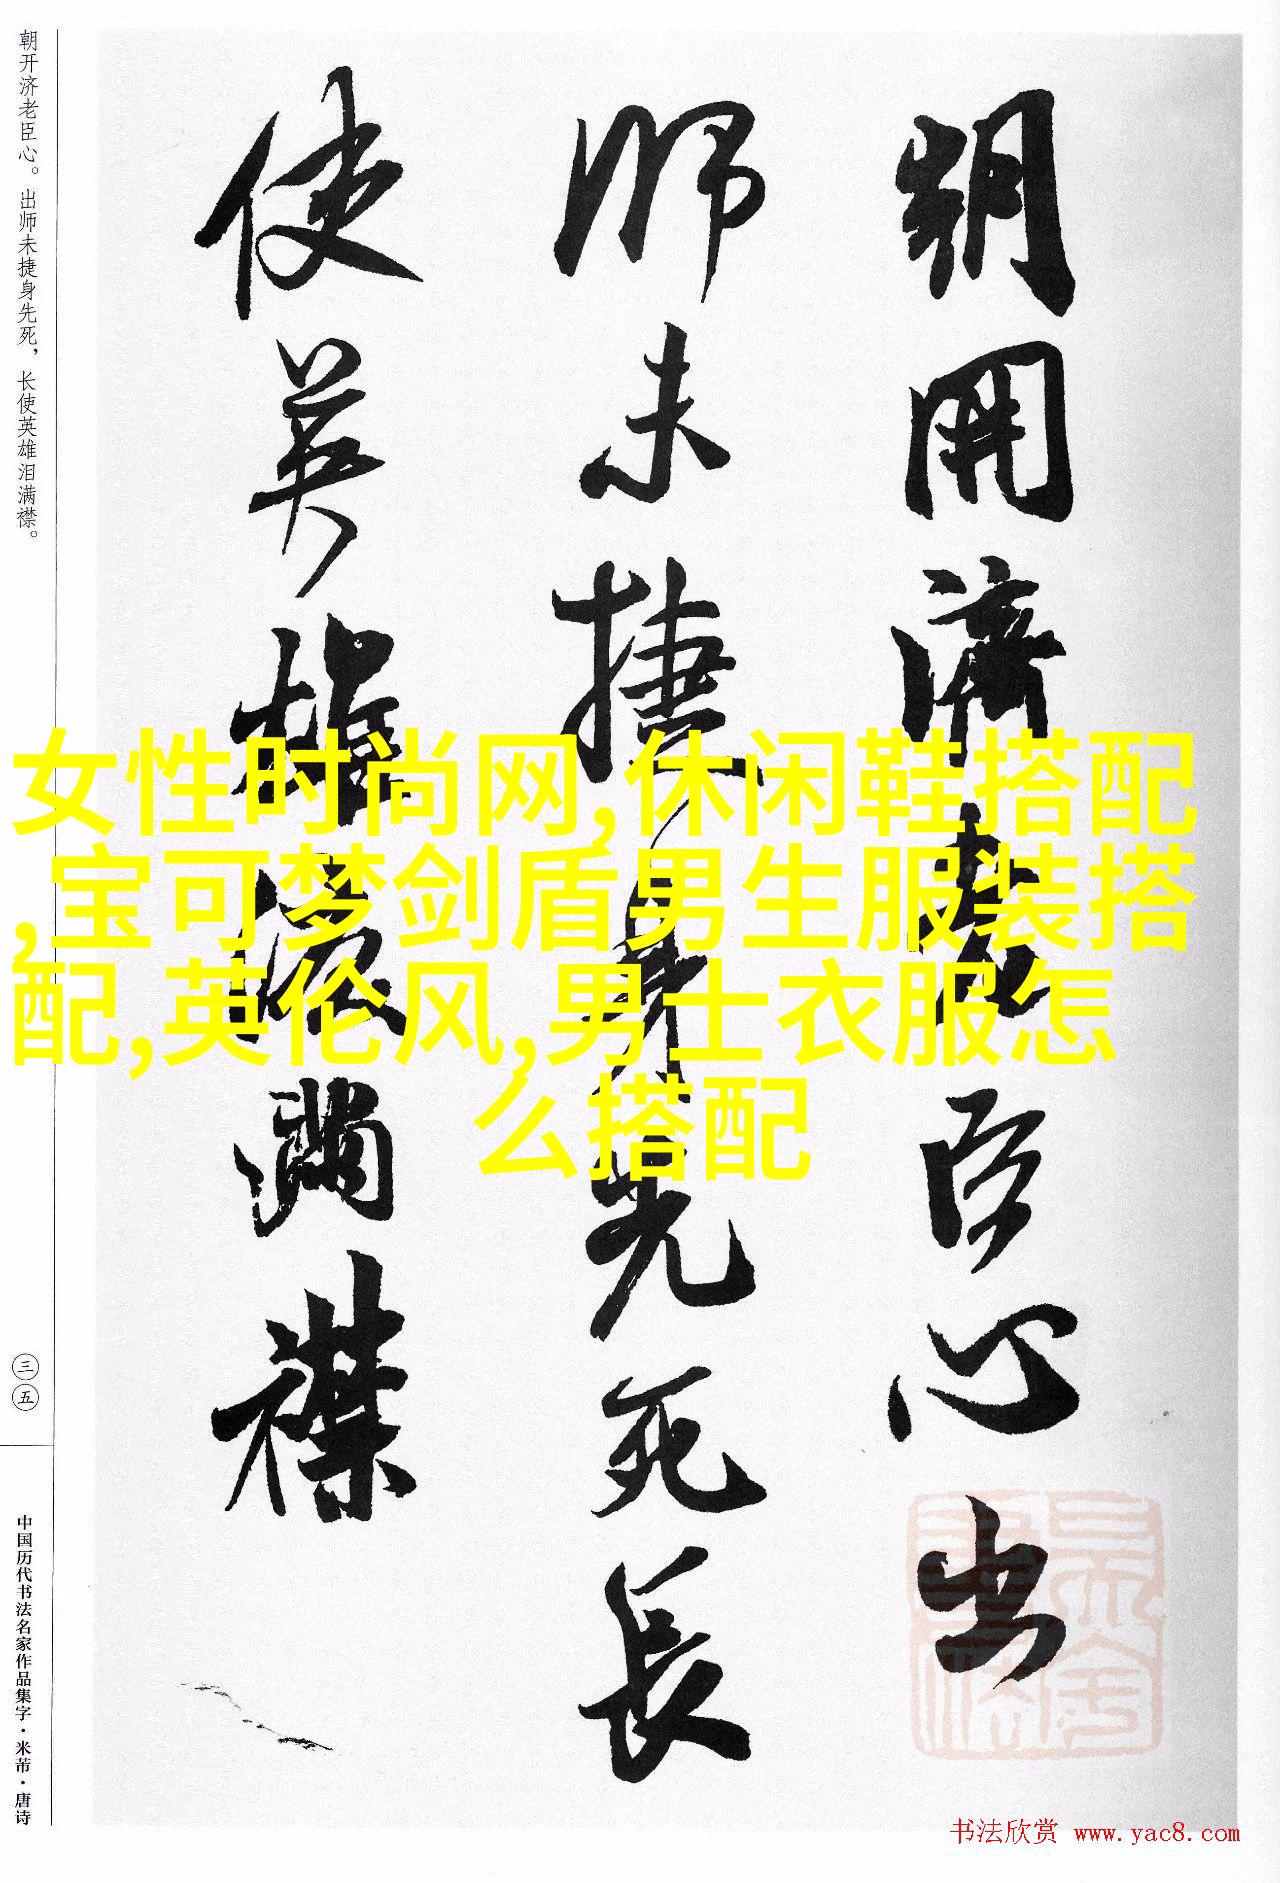 朝开济老臣心。出师未捷身先死，长使英雄泪满襟。
朝開濟老臣心出
師未捷身先死長
使英雄淚滿襟
女性时尚网,休闲鞋搭配
,宝可梦剑盾男生服装搭
配,英伦风,男士衣服怎
么搭配
三五
中国历代书法名家作品集字·米芾·唐诗
书法欣赏 www.yac8.com